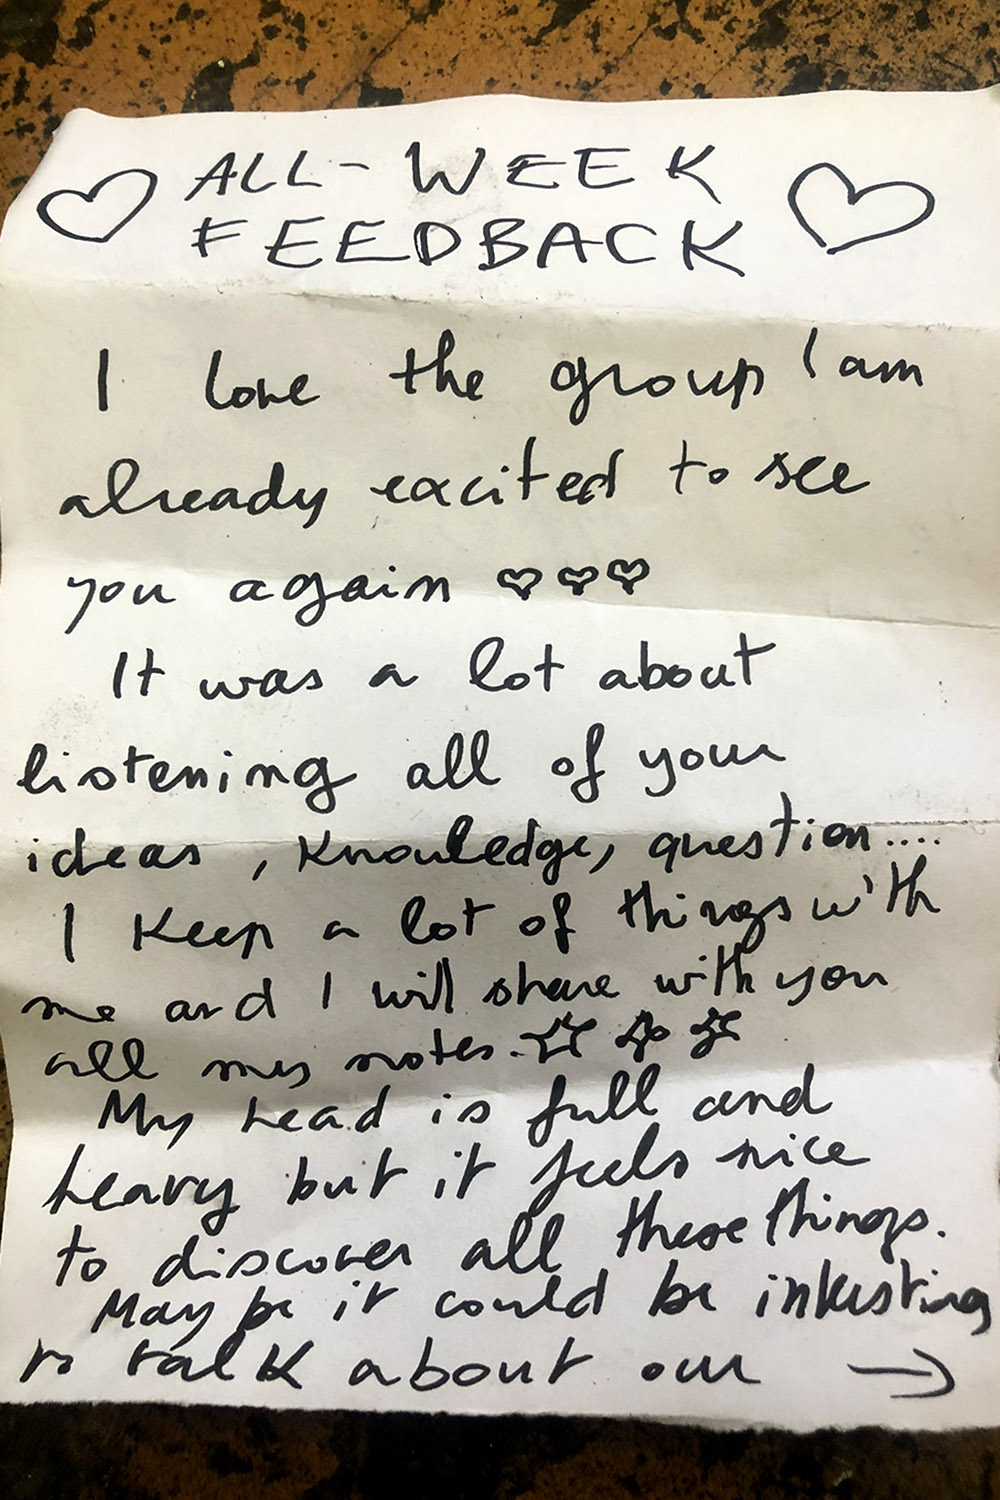 ♡ ALL-WEEK ♡
FEEDBACK
I love the group I am
already excited to see
you again ♡♡♡
It was a lot about
listening all of your
ideas, knowledge, question....
I keep a lot of things with
me and I will share with you
all my notes. ☆☆☆
My head is full and
heavy but it feels nice
to discover all these things.
May be it could be interesting
to talk about our →